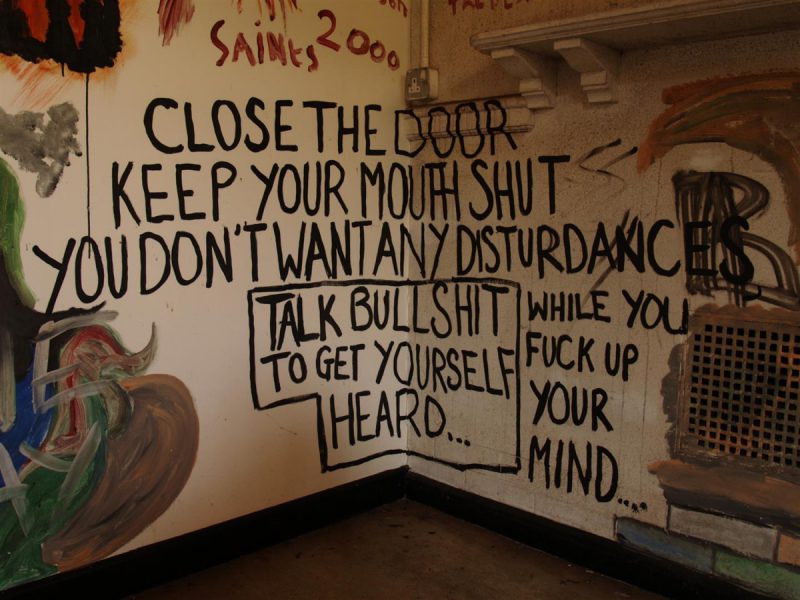 SAINTS 2000
CLOSE THE DOOR
KEEP YOUR MOUTH SHUT
YOU DON'T WANT ANY DISTURDANCES
TALK BULLSHIT
TO GET YOURSELF
HEARD...
WHILE YOU
FUCK UP
YOUR
MIND....